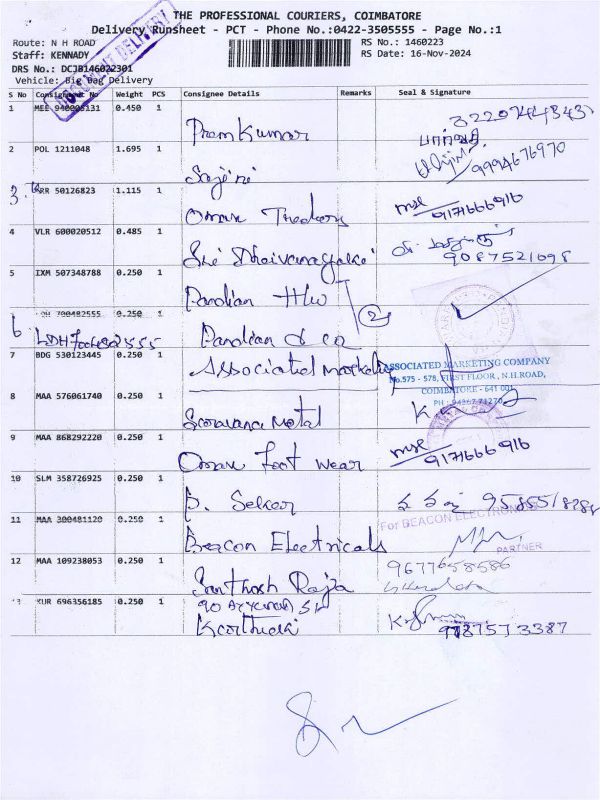 THE PROFESSIONAL COURIERS, COIMBATORE
Delivery Runsheet - PCT - Phone No.:0422-3505555 - Page No.:1
Route: N H ROAD
RS No.: 1460223
Staff: KENNADY
RS Date: 16-Nov-2024
DRS No.: DCJB146022301
Vehicle: Big Bag Delivery
DOCUMENT DELIVERY
S No Consignment No Weight PCS Consignee Details Remarks Seal & Signature
1 MEE 940005131 0.450 1 Prem Kumar
2 POL 1211048 1.695 1 Sajini 9994676970
3. ARR 50126823 1.115 1 Oman 9171666916
4 VLR 600020512 0.485 1 Sri 9087521098
5 IXM 507348788 0.250 1 Pandian H/w 2
6 LDH 700482555 0.250 1 Pandian & co
7 BDG 530123445 0.250 1 Associated Marketing
ASSOCIATED MARKETING COMPANY
No.575 - 578, FIRST FLOOR, N.H.ROAD,
COIMBATORE - 641 001
PH : 94867 71270
8 MAA 576061740 0.250 1 Saravana Metal
9 MAA 868292220 0.250 1 Oman Foot Wear 9171666916
10 SLM 358726925 0.250 1 B. Sekar
11 MAA 300481120 0.250 1 Beacon Electricals
For BEACON ELECTRONICS
PARTNER
12 MAA 109238053 0.250 1 Santhosh Raja 9677658586
13 KUR 696356185 0.250 1 Karthick